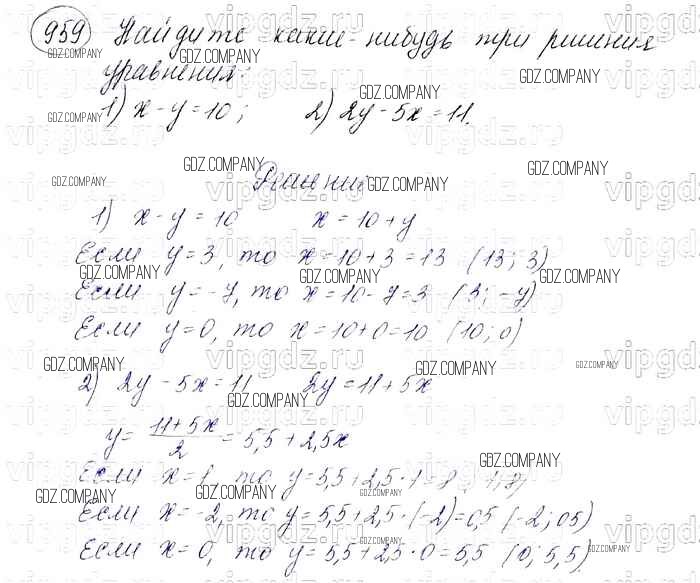 959 Найдите какие-нибудь три решения
уравнения:
1) x - y = 10; 2) 2y - 5x = 11.
Решение
1) x - y = 10 x = 10 + y
Если y = 3, то x = 10 + 3 = 13 (13; 3)
Если y = -7, то x = 10 - 7 = 3 (3; -7)
Если y = 0, то x = 10 + 0 = 10 (10; 0)
2) 2y - 5x = 11 2y = 11 + 5x
y = (11 + 5x)/2 = 5,5 + 2,5x
Если x = 1, то y = 5,5 + 2,5 · 1 = 8 (1; 8)
Если x = -2, то y = 5,5 + 2,5 · (-2) = 0,5 (-2; 0,5)
Если x = 0, то y = 5,5 + 2,5 · 0 = 5,5 (0; 5,5)
GDZ.COMPANY
vipgdz.ru